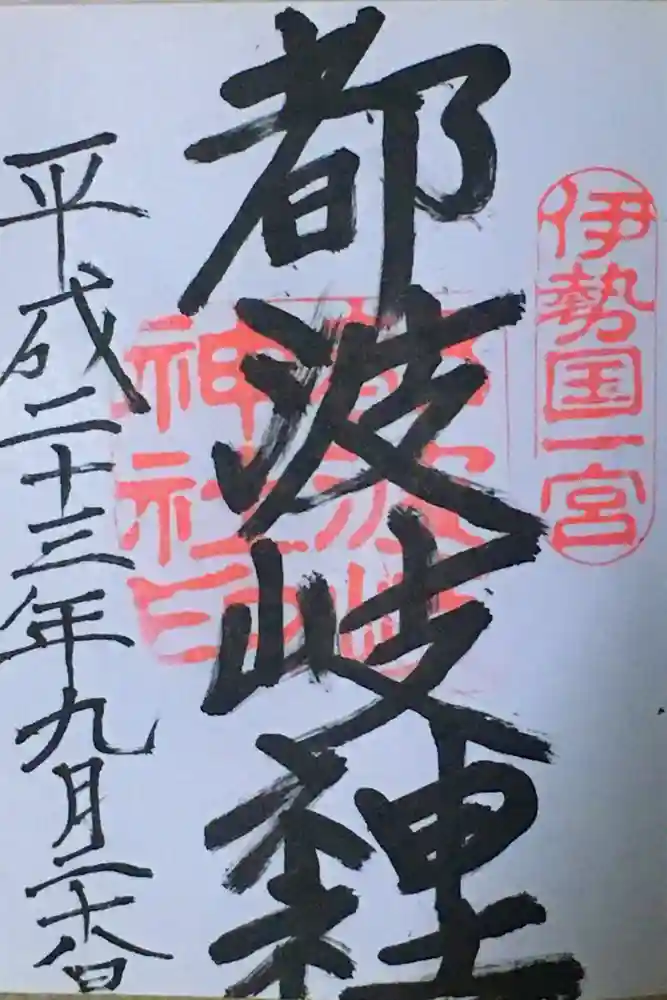 伊勢国一宮
都波岐神社
都波岐
神社印
平成二十三年九月二十八日